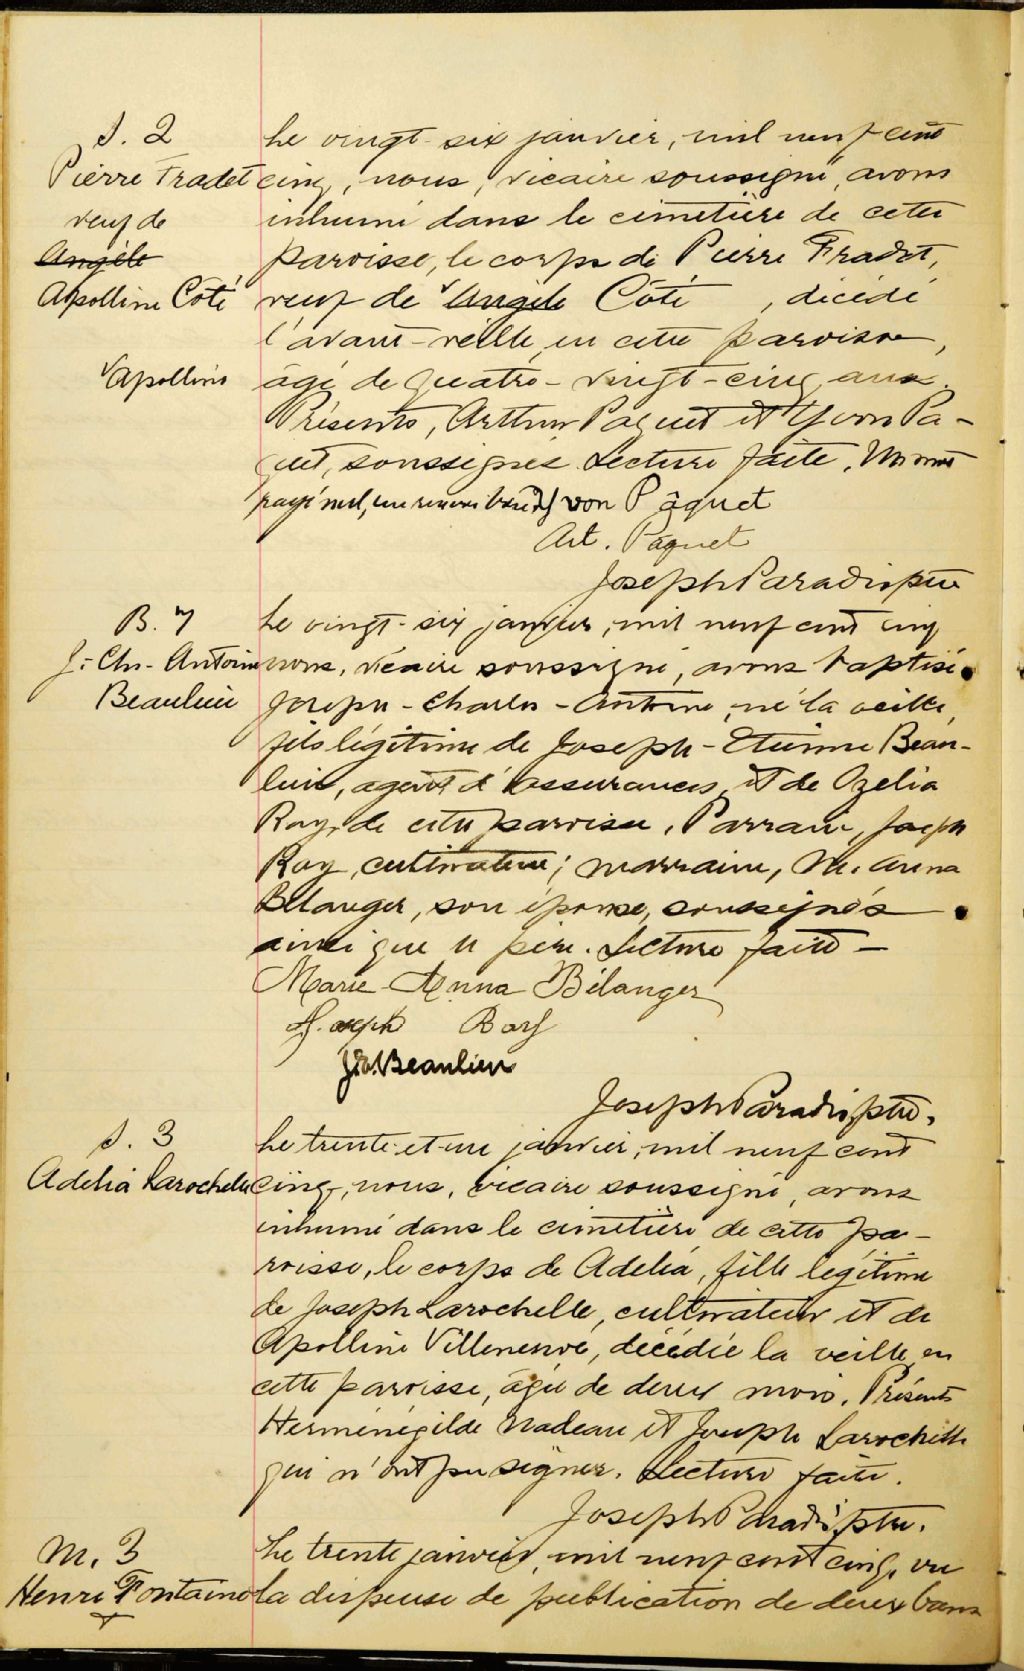 S. 2
Pierre Fradet
veuf de
Angèle
Apolline Côté
Apolline
Le vingt-six janvier, mil neuf cent
cinq, nous, vicaire soussigné, avons
inhumé dans le cimetière de cette
paroisse, le corps de Pierre Fradet,
veuf de Angèle Côté, décédé
l'avant-veille, en cette paroisse,
âgé de quatre-vingt-cinq ans.
Présents, Arthur Paquet et Yvon Pa-
quet, soussignés. Lecture faite. Un mot
rayé nul, un renvoi bon. Yvon Pâquet
Art. Pâquet
Joseph Paradis ptre
B. 7
J.-Chs-Antoine
Beaulieu
Le vingt-six janvier, mil neuf cent cinq
nous, vicaire soussigné, avons baptisé
Joseph-Charles-Antoine, né la veille,
fils légitime de Joseph-Etienne Beau-
lieu, agent d'assurances, et de Ozelia
Roy, de cette paroisse. Parrain, Joseph
Roy, cultivateur; marraine, M. Anna
Bélanger, son épouse, soussignés
ainsi que le père. Lecture faite -
Marie Anna Bélanger
Joseph Roy
J.E. Beaulieu
Joseph Paradis, ptre.
S. 3
Adélia Larochelle
Le trente-et-un janvier, mil neuf cent
cinq, nous, vicaire soussigné, avons
inhumé dans le cimetière de cette pa-
roisse, le corps de Adélia, fille légitime
de Joseph Larochelle, cultivateur et de
Apolline Villeneuve, décédée la veille, en
cette paroisse, âgée de deux mois. Présents
Herménégilde Nadeau et Joseph Larochelle
qui n'ont pu signer. Lecture faite.
Joseph Paradis, ptre.
M. 3
Henri Fontaine
+
Le trente janvier, mil neuf cent cinq, vu
la dispense de publication de deux bans